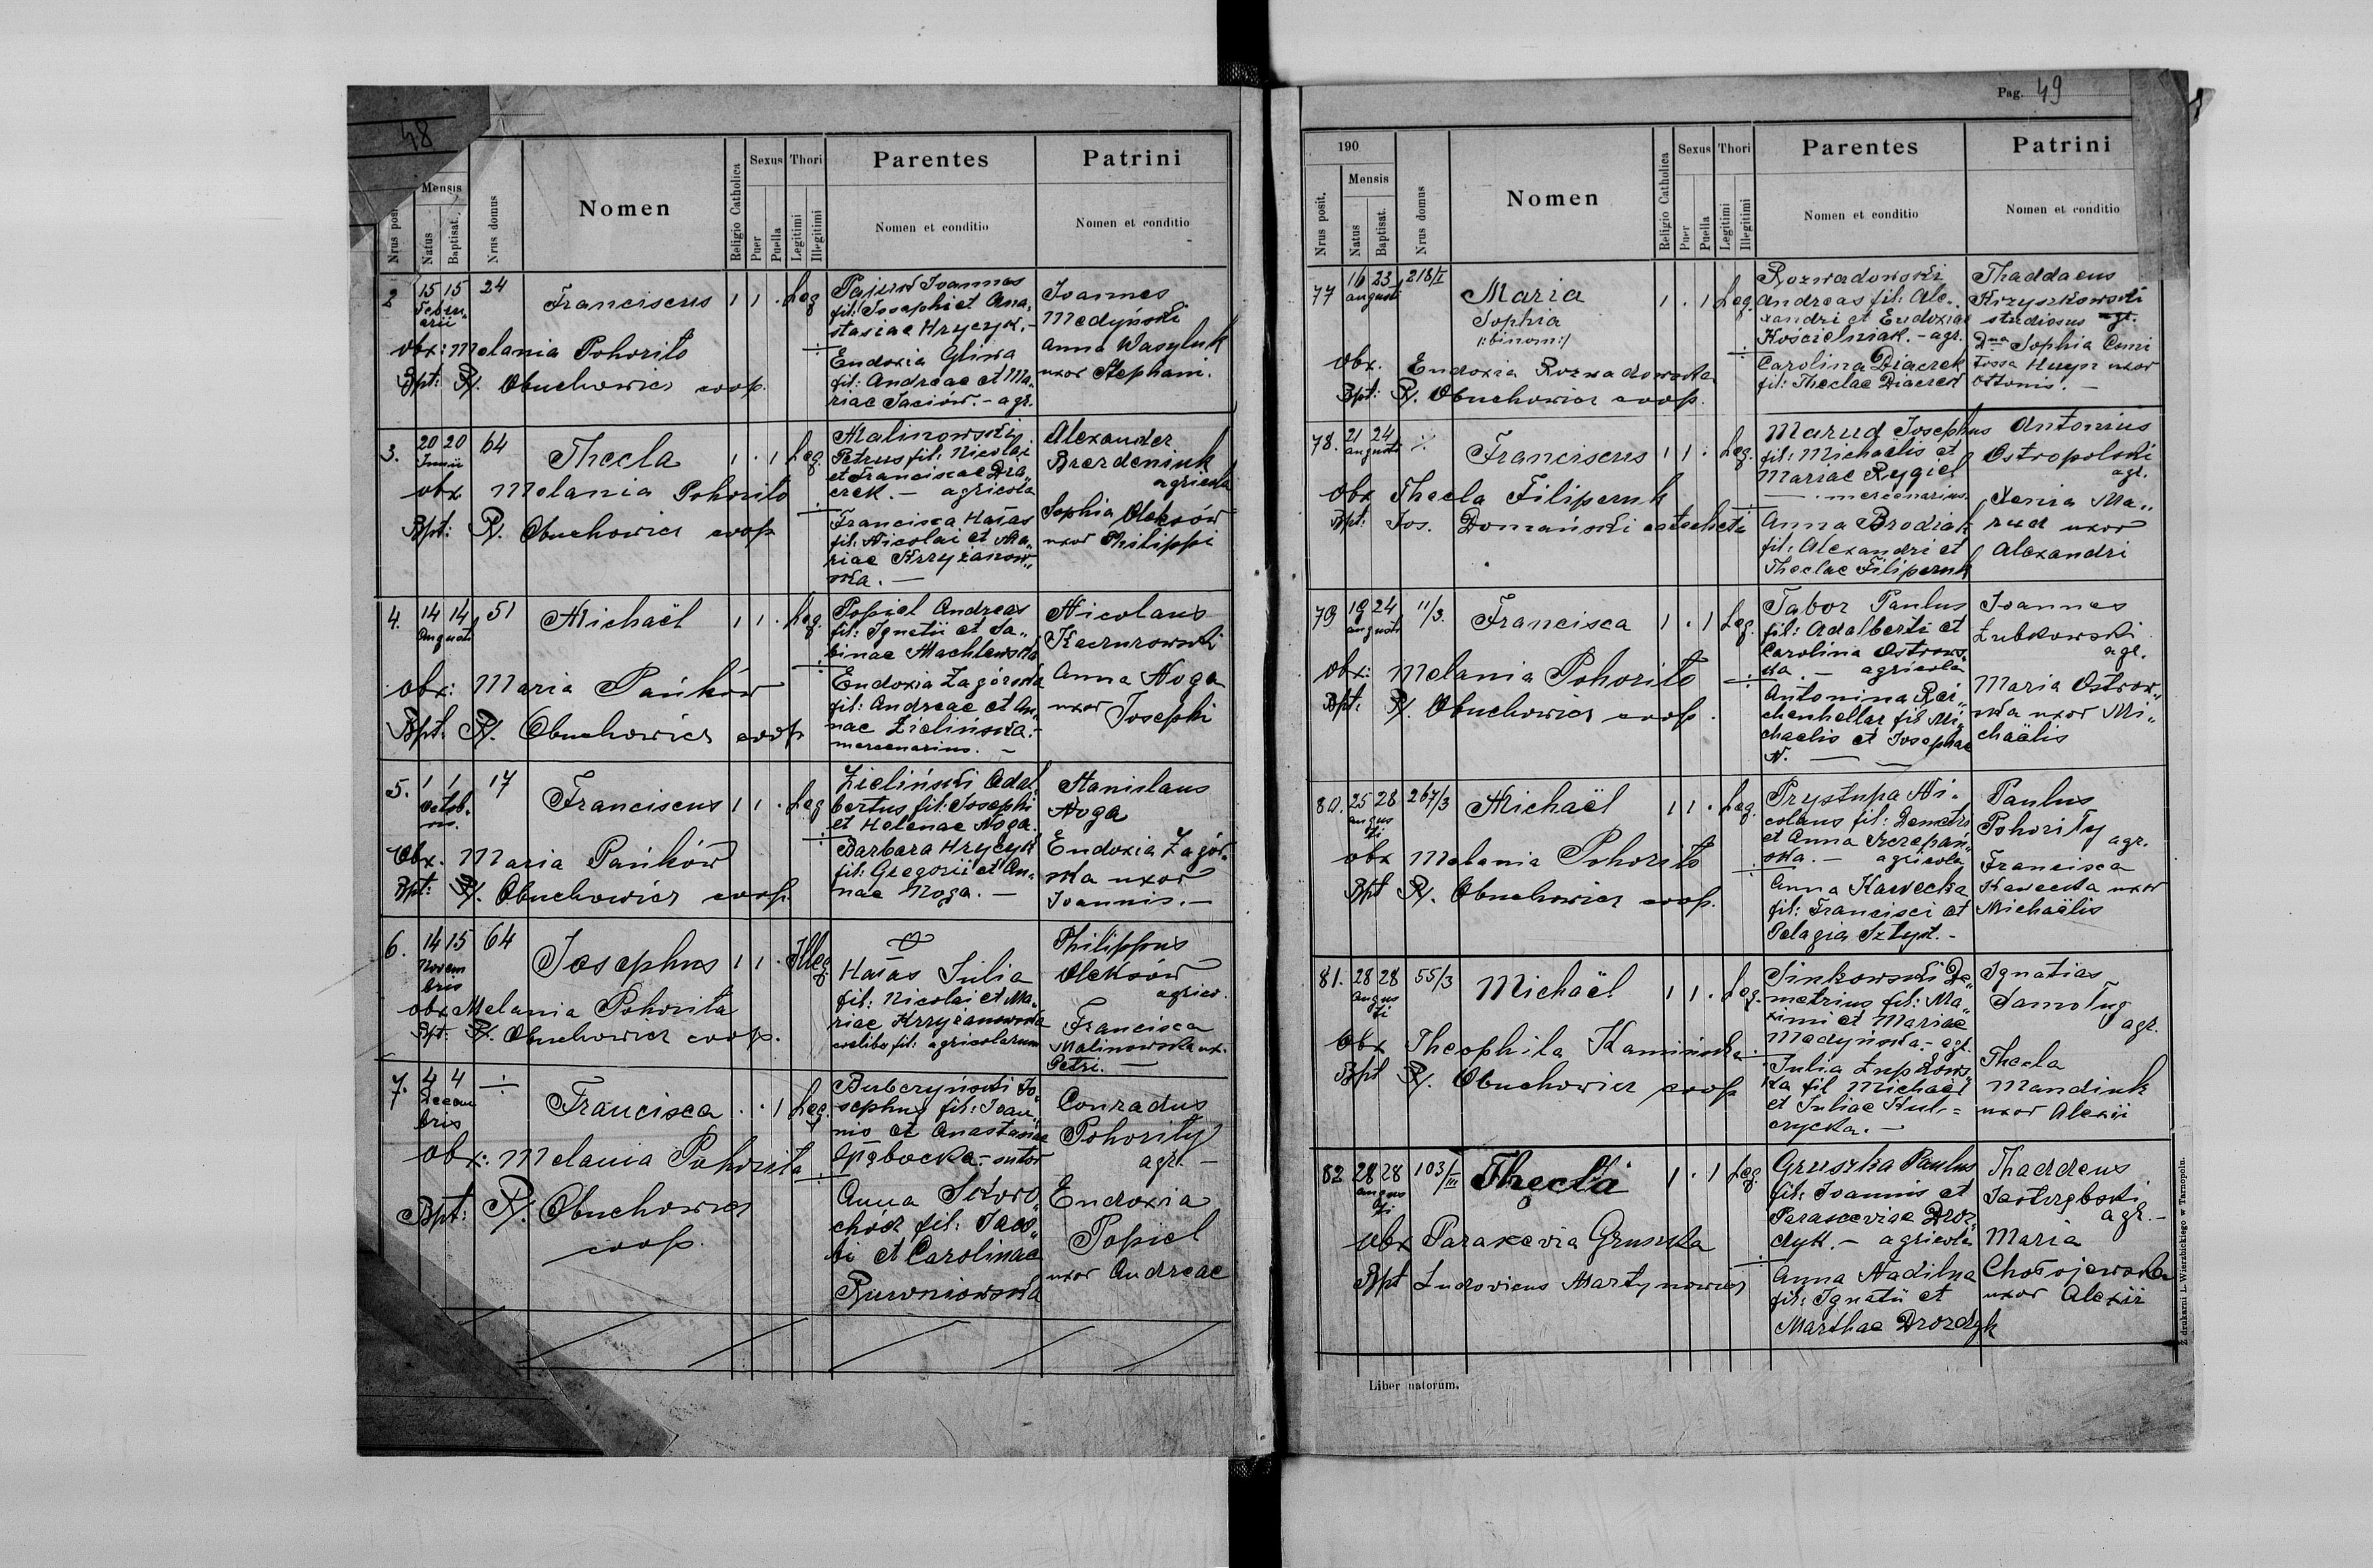 48
Mensis
Nrus posit.
Natus
Baptisat.
Nrus domus
Nomen
Religio Catholica
Sexus
Puer
Puella
Thori
Legitimi
Illegitimi
Parentes
Nomen et conditio
Patrini
Nomen et conditio
2 15 15 24 Franciscus 1 1 . Leg
Februarii
obx: Melania Pohoriło
Bpt: R. Obuchowicz coop.
Joannes
fil: Josephi et Ana„
stasiae Hryczyk. -
Eudoxia Gliwa
fil: Andreae et Ma„
riae Jaciów. - agr.
Joannes
Medyński
Anna Wasyluk
uxor Stephani.
3. 20 20 64 Thecla 1 . 1 Leg.
Junii
obx Melania Pohoriło
Bpt: R. Obuchowicz coop
Malinowski
Petrus fil: Nicolai
et Franciscae Dia„
czek. - agricola
Francisca Hałas
fil: Nicolai et Ma„
riae Krzyżanow„
ska. -
Alexander
agricola
Sophia Oleksów
uxor Philippi
4. 14 14 51 Michaël 1 1 . Leg.
Augusti
obx: Maria Pańków
Bpt. R. Obuchowicz coop
Popiel Andreas
fil: Ignatii et Sa„
binae Machlewska
Eudoxia Zagórska
fil: Andreae et An„
nae Zielińska. -
mercenarius. -
Nicolaus
Kaczurowski
Anna Noga
uxor Josephi
5. 1 1 17 Franciscus 1 1 . Leg
Octob„
ris.
Obx. Maria Pańków
Bpt: R. Obuchowicz coop.
Zieliński Adal„
bertus fil: Josephi
et Helenae Noga.
Barbara Hryczyk
fil: Gregorii et An„
nae Noga. -
Stanislaus
Noga
Eudoxia Zagór„
ska uxor
Joannis. -
6. 14 15 64 Josephus 1 1 . Illeg.
Novem
bris
obx Melania Pohoriła
Bpt: R. Obuchowicz coop.
Hałas Julia
fil: Nicolai et Ma„
riae Krzyżanowska
coelibs fil: agricolarum
Philippus
Oleksów
agricol.
Francisca
Malinowska ux.
Petri. -
7. 4 4 ÷ Francisca . . 1 Leg.
Decem
bris
obx: Melania Pohoriła
Bpt: R. Obuchowicz
coop.
Buberzyński Jo„
sephus fil: Joan„
nis et Anastasiae
Głębocka. - sutor
Anna Skoro„
chód fil: Jaco„
bi et Carolinae
Ruwniowska
Conradus
Pohoriły
agr. -
Eudoxia
Popiel
uxor Andreae
Pag. 49
190
Mensis
Nrus posit.
Natus
Baptisat.
Nrus domus
Nomen
Religio Catholica
Sexus
Puer
Puella
Thori
Legitimi
Illegitimi
Parentes
Nomen et conditio
Patrini
Nomen et conditio
77 16 23 218/II Maria 1 . 1 Leg.
augusti
Sophia
/:binom:/
Obx. Eudoxia Rozwadowska
Bpt: R. Obuchowicz coop.
Rozwadowski
Andreas fil: Ale„
xandri et Eudoxiae
Kościelniak. - agr.
Carolina Diaczek
fil: Theclae Diaczek
Thaddaeus
Krzyszkowski
studiosus agr.
Dna Sophia Comi
tissa Huyn uxor
Ottonis. -
78. 21 24 ÷ Franciscus 1 1 . Leg.
augusti
obx Thecla Filipczuk
Bpt: Jos. Domański catecheta
Marud Josephus
fil: Michaëlis et
Mariae Rygiel
mercenarius
Anna Brodiak
fil: Alexandri et
Theclae Filipczuk
Antonius
Ostropolski
agr.
Xenia Ma„
rud uxor
Alexandri
79 19 24 11/3. Francisca 1 . 1 Leg.
augusti
obx: Melania Pohoriło
Bpt: R. Obuchowicz coop.
Tabor Paulus
fil: Adalberti et
Carolina Ostrows„
ka. - agricola
Antonina Rei„
chenheller fil Mi„
chaelis et Josephae
N. -
Joannes
Zubkowski
agr.
Maria Ostrow„
ska uxor Mi„
chaëlis
80. 25 28 267/3 Michaël 1 1 . Leg.
augus
ti
obx Melania Pohoriło
Bpt R. Obuchowicz coop.
Prystupa Ni„
colaus fil: Demetri
et Anna Szczepań„
ska. - agricola
Anna Kawecka
fil: Francisci et
Pelagia Sztyk. -
Paulus
Pohoriły
agr.
Francisca
Kawecka uxor
Michaëlis
81. 28 28 55/3 Michaël 1 1 . Leg.
augus
ti
obx Theophila Kamińska
Bpt R. Obuchowicz coop
Sinkowski De„
metrius fil: Ma„
ximi et Mariae
Madyńska. - agr.
Julia Zupkows„
ka fil Michael
et Juliae Kul=
czycka. -
Ignatias
Samoług
agr.
Thecla
Mandiuk
uxor Alexii
82 28 28 103/III Thecla 1 . 1 Leg.
augus
ti
obx Parascevia Gruszka
Bpt Ludovicus Martynowicz
Gruszka Paulus
fil: Joannis et
Parasceviae Droz„
dyk. - agricola
Anna Nadilna
fil: Ignatii et
Marthae Drozdyk
Thaddeus
Jastrzębski
agr. -
Maria
Chołojewska
uxor Alexii
Liber natorum.
Z drukarni L. Wierzbickiego w Tarnopolu.